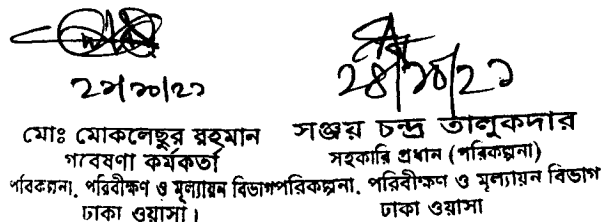 ২৮/১০/২১
মোঃ মোকলেছুর রহমান
গবেষণা কর্মকর্তা
পরিকল্পনা, পরিবীক্ষণ ও মূল্যায়ন বিভাগ
ঢাকা ওয়াসা।
সঞ্জয় চন্দ্র তালুকদার
সহকারি প্রধান (পরিকল্পনা)
পরিকল্পনা, পরিবীক্ষণ ও মূল্যায়ন বিভাগ
ঢাকা ওয়াসা